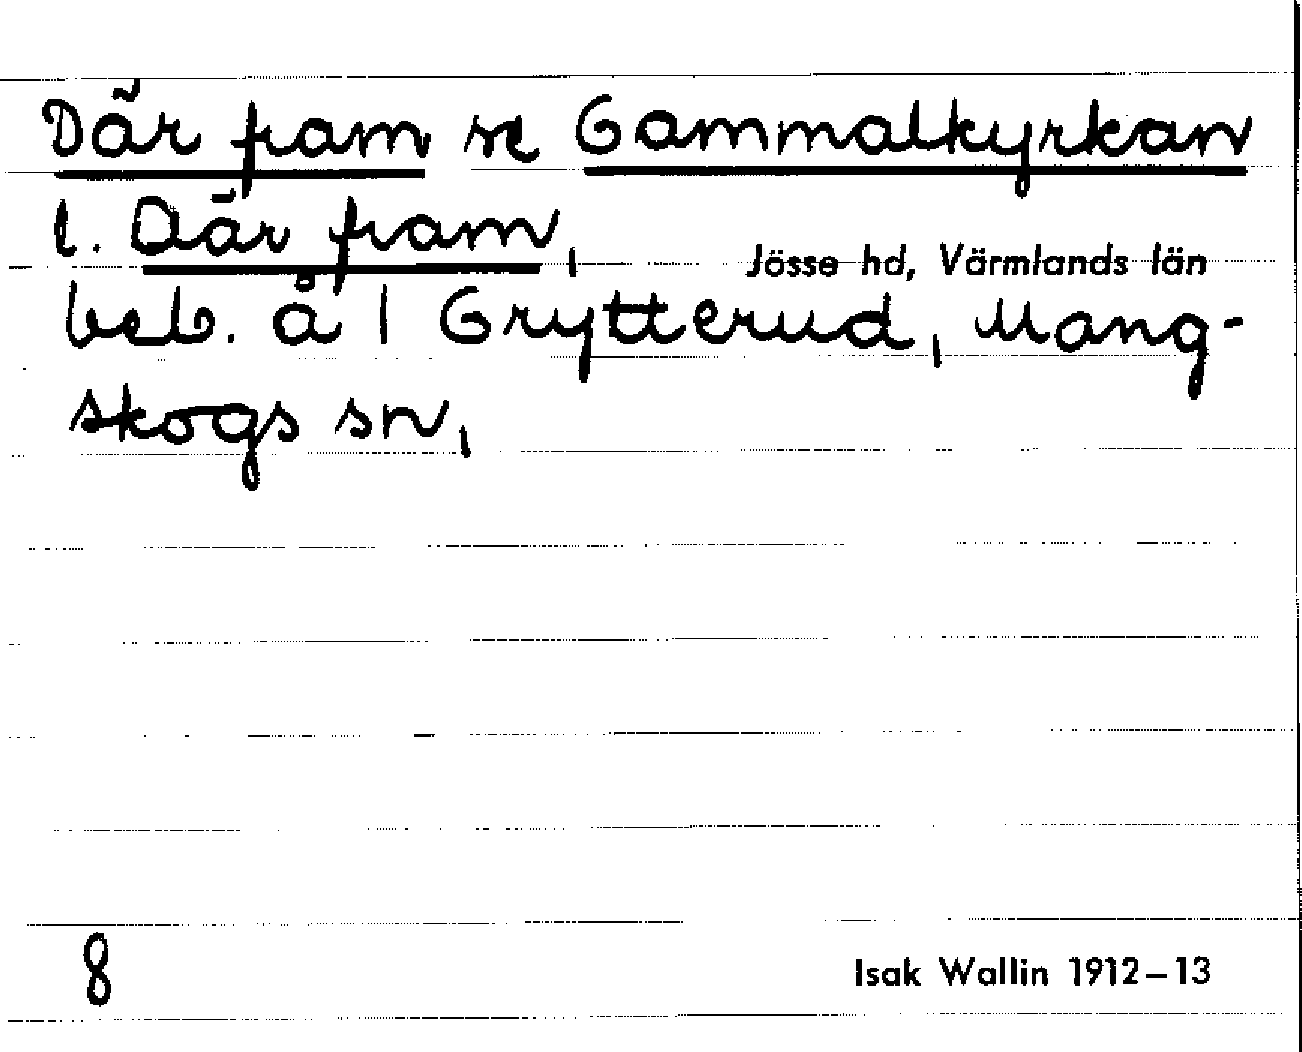 Där fram se Gammalkyrkan
l. Där fram,
Jösse hd, Värmlands län
beb. å 1 Grytterud, Mang-
skogs sn,
8
Isak Wallin 1912–13